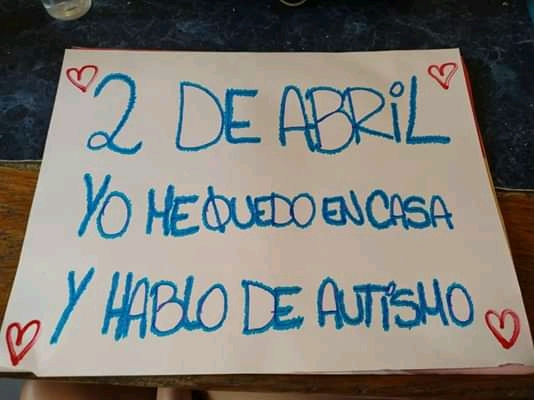 2 DE ABRIL
YO ME QUEDO EN CASA
Y HABLO DE AUTISMO